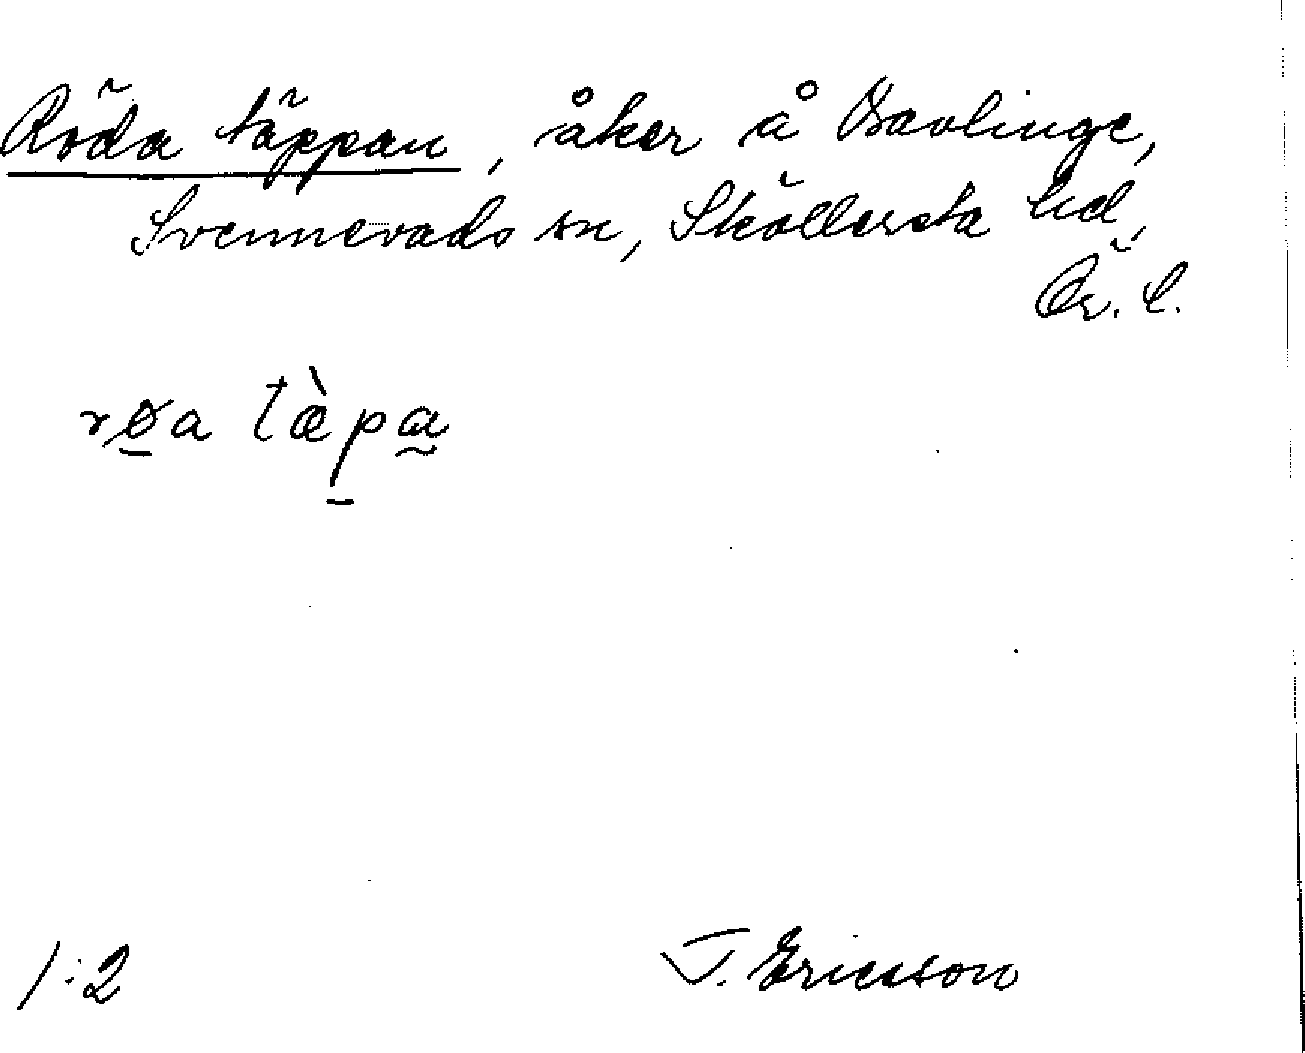 Röda täppan, åker å Bavlinge,
Svennevads sn, Sköllersta hd,
Ör. l.
rø̱a tæ̀p̱a̰
1:2
J. Ericsson